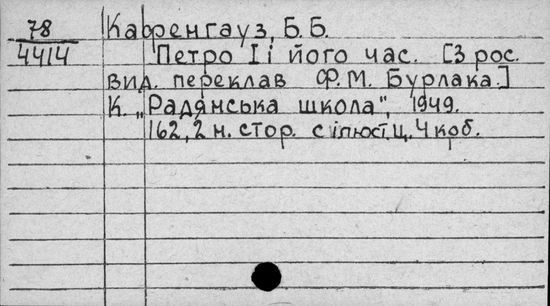 78
4414
Кафренгауз, Б. Б.
Петро І і його час. [З рос.
вид. переклав Ф. М. Бурлака.]
К. „Радянська школа", 1949.
162, 2 н. стор. с ілюст. ц. 4 крб.